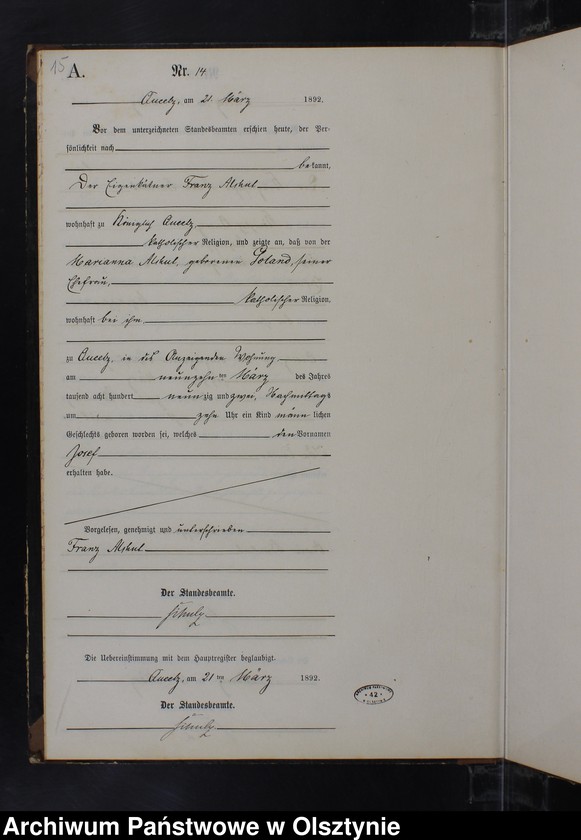 15
A.
Nr. 14.
am 21. März 1892.
Vor dem unterzeichneten Standesbeamten erschien heute, der Per-
sönlichkeit nach
bekannt,
Der Eigenkätner Franz
wohnhaft zu Königlich
katholischer Religion, und zeigte an, daß von der
Marianna geborenen seiner
Ehefrau,
katholischer Religion,
wohnhaft bei ihm
zu in des Anzeigenden Wohnung
am neunzehnten März des Jahres
tausend acht hundert neunzig und zwei, Nachmittags
um zehn Uhr ein Kind männlichen
Geschlechts geboren worden sei, welches den Vornamen
Josef
erhalten habe.
Vorgelesen, genehmigt und unterschrieben
Franz
Der Standesbeamte.
Schulz
Die Uebereinstimmung mit dem Hauptregister beglaubigt.
am 21ten März 1892.
Der Standesbeamte.
Schulz
42
Archiwum Państwowe w Olsztynie